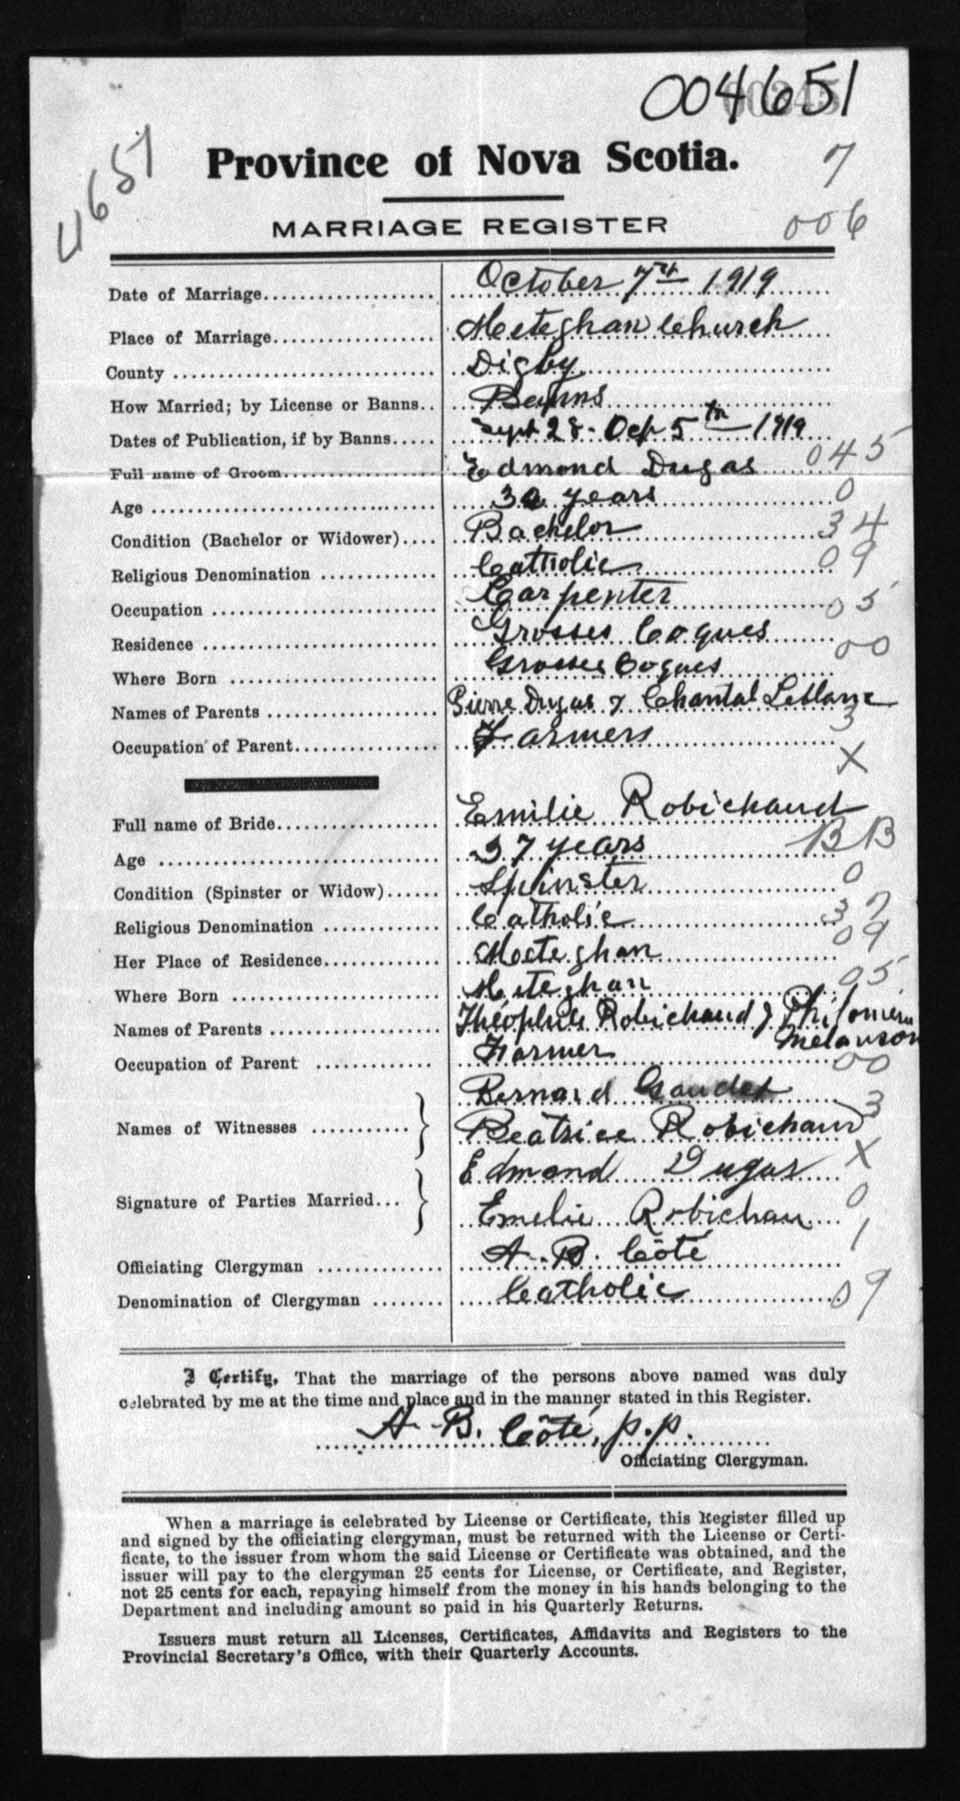 004651
4651
Province of Nova Scotia.
7
MARRIAGE REGISTER
006
Date of Marriage.................... October 7th 1919
Place of Marriage................... Meteghan Church
County .............................. Digby
How Married; by License or Banns.. Banns
Dates of Publication, if by Banns..... Sept 28 - Oct 5th 1919
Full name of Groom.................. Edmond Dugas 045
Age .................................. years 0
Condition (Bachelor or Widower).... Bachelor 34
Religious Denomination ............. Catholic 09
Occupation .......................... Carpenter 05
Residence ........................... Grosses Coques 00
Where Born ......................... Grosses Coques
Names of Parents ................... Pierre Dugas & Chantal Leblanc
Occupation of Parent................ Farmers 3
X
Full name of Bride................... Emilie Robichaud
Age .................................. 37 years BB
Condition (Spinster or Widow)...... Spinster 0
Religious Denomination ............. Catholic 37
Her Place of Residence.............. Meteghan 09
Where Born ......................... Meteghan 05
Names of Parents ................... Théophile Robichaud & Philomène Melanson
Occupation of Parent ............... Farmer 00
Bernard Gaudet 3
Names of Witnesses ...........
Beatrice Robichaud X
Edmond Dugas 0
Signature of Parties Married...
Emelie Robichau 1
Officiating Clergyman ............... A. B. Côté
Denomination of Clergyman ........ Catholic 09
I Certify, That the marriage of the persons above named was duly
celebrated by me at the time and place and in the manner stated in this Register.
A. B. Côté, p.p.
Officiating Clergyman.
When a marriage is celebrated by License or Certificate, this Register filled up
and signed by the officiating clergyman, must be returned with the License or Certi-
ficate, to the issuer from whom the said License or Certificate was obtained, and the
issuer will pay to the clergyman 25 cents for License, or Certificate, and Register,
not 25 cents for each, repaying himself from the money in his hands belonging to the
Department and including amount so paid in his Quarterly Returns.
Issuers must return all Licenses, Certificates, Affidavits and Registers to the
Provincial Secretary's Office, with their Quarterly Accounts.